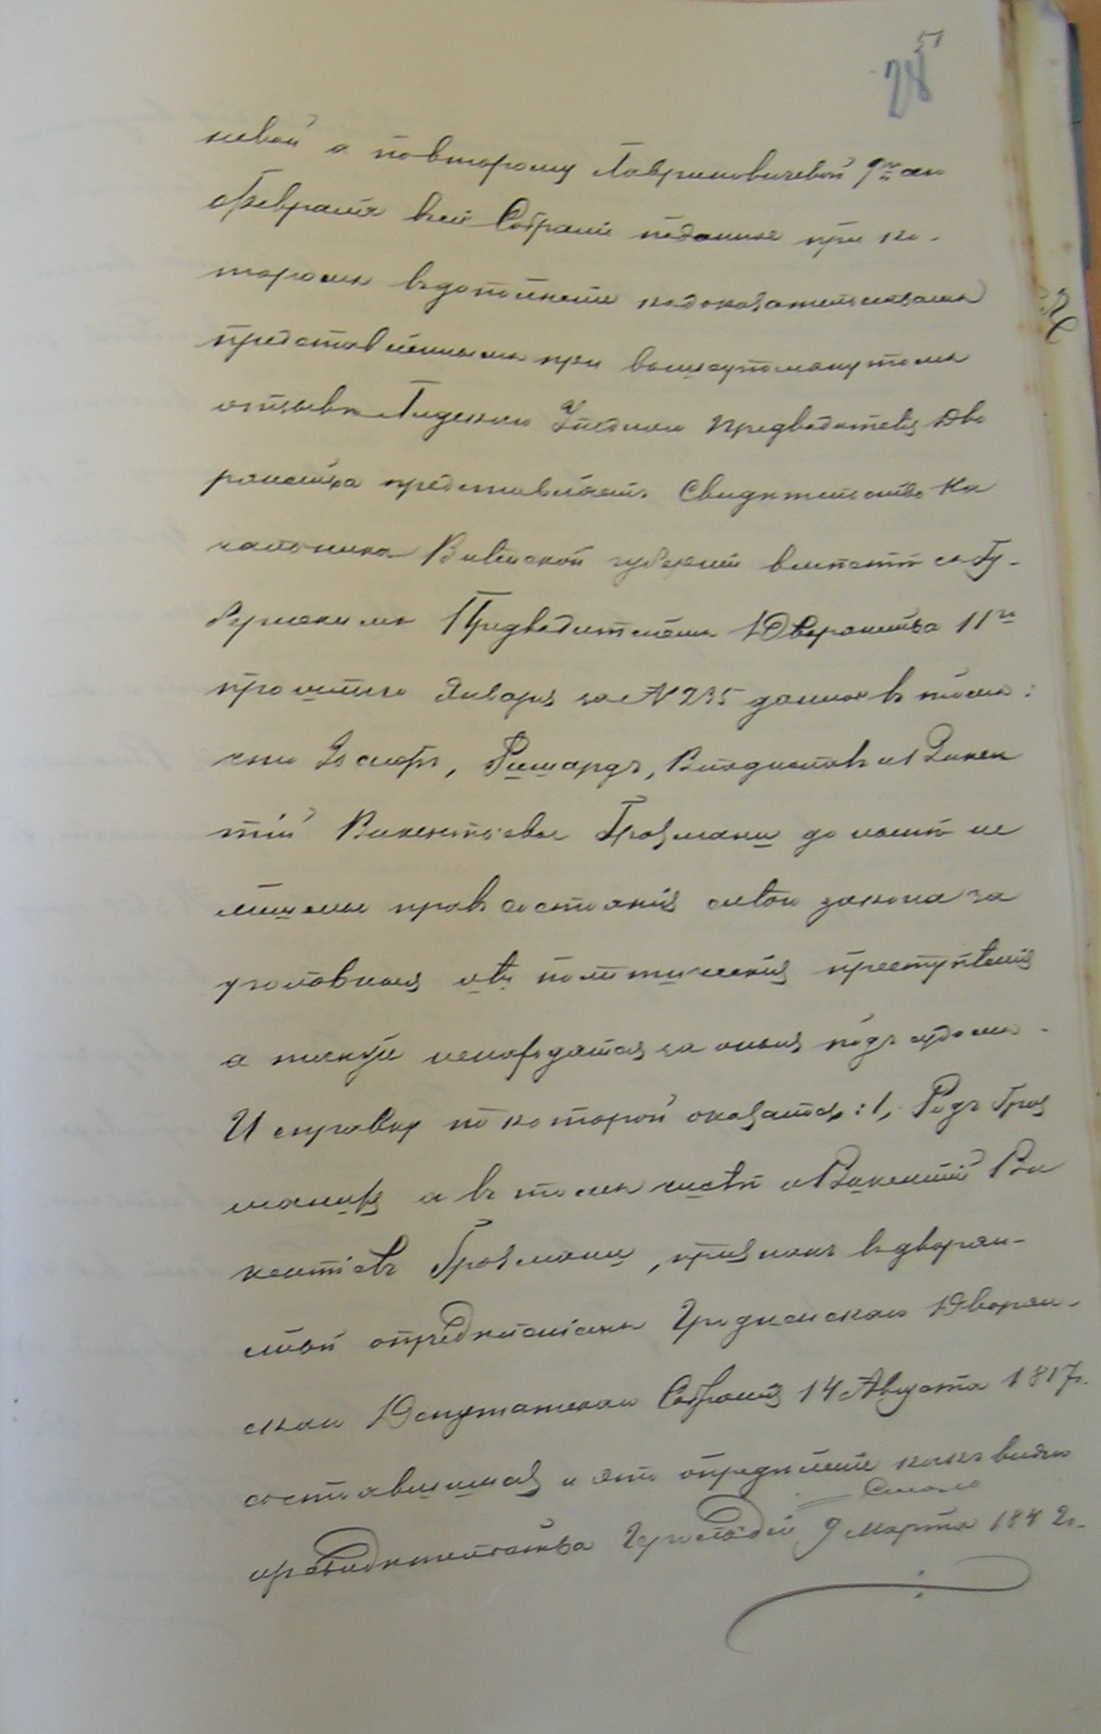 51
28
невой а повторому Лавриновичевой 9го сего
Февраля въ сіе Собраніе поданное при ко-
торомъ въ дополненіе къ доказательствамъ
представленнымъ при вышеупомянутомъ
отзывѣ Лидскаго Уѣзднаго Предводателя Дво
рянства представляетъ Свидѣтельство На
чальника Виленской губерніи вмѣстѣ съ Гу-
бернскимъ Предводителемъ Дворянства 11го
прошлаго Января за № 235 данное въ томъ:
что Іосифъ, Ришардъ, Владиславъ и Викен
тій Викентьевы Грозмани до лѣтъ не
лишены правъ состоянія силою закона за
уголовныя или политическія преступленія
а также ненаходятся за оныя подъ судомъ.
И справку по которой оказалось: 1, Родъ Гроз
маніи а въ томъ числѣ и Викентій Ви
кентіевъ Грозмани, признанъ въ дворян-
ствѣ опредѣленіемъ Гродненскаго Дворян-
скаго Депутатскаго Собранія 14 Августа 1817г.
состоявшимся и это опредѣленіе какъ видно
Сената
изъ свидѣтельства Герольдіи 9 Марта 1842г.